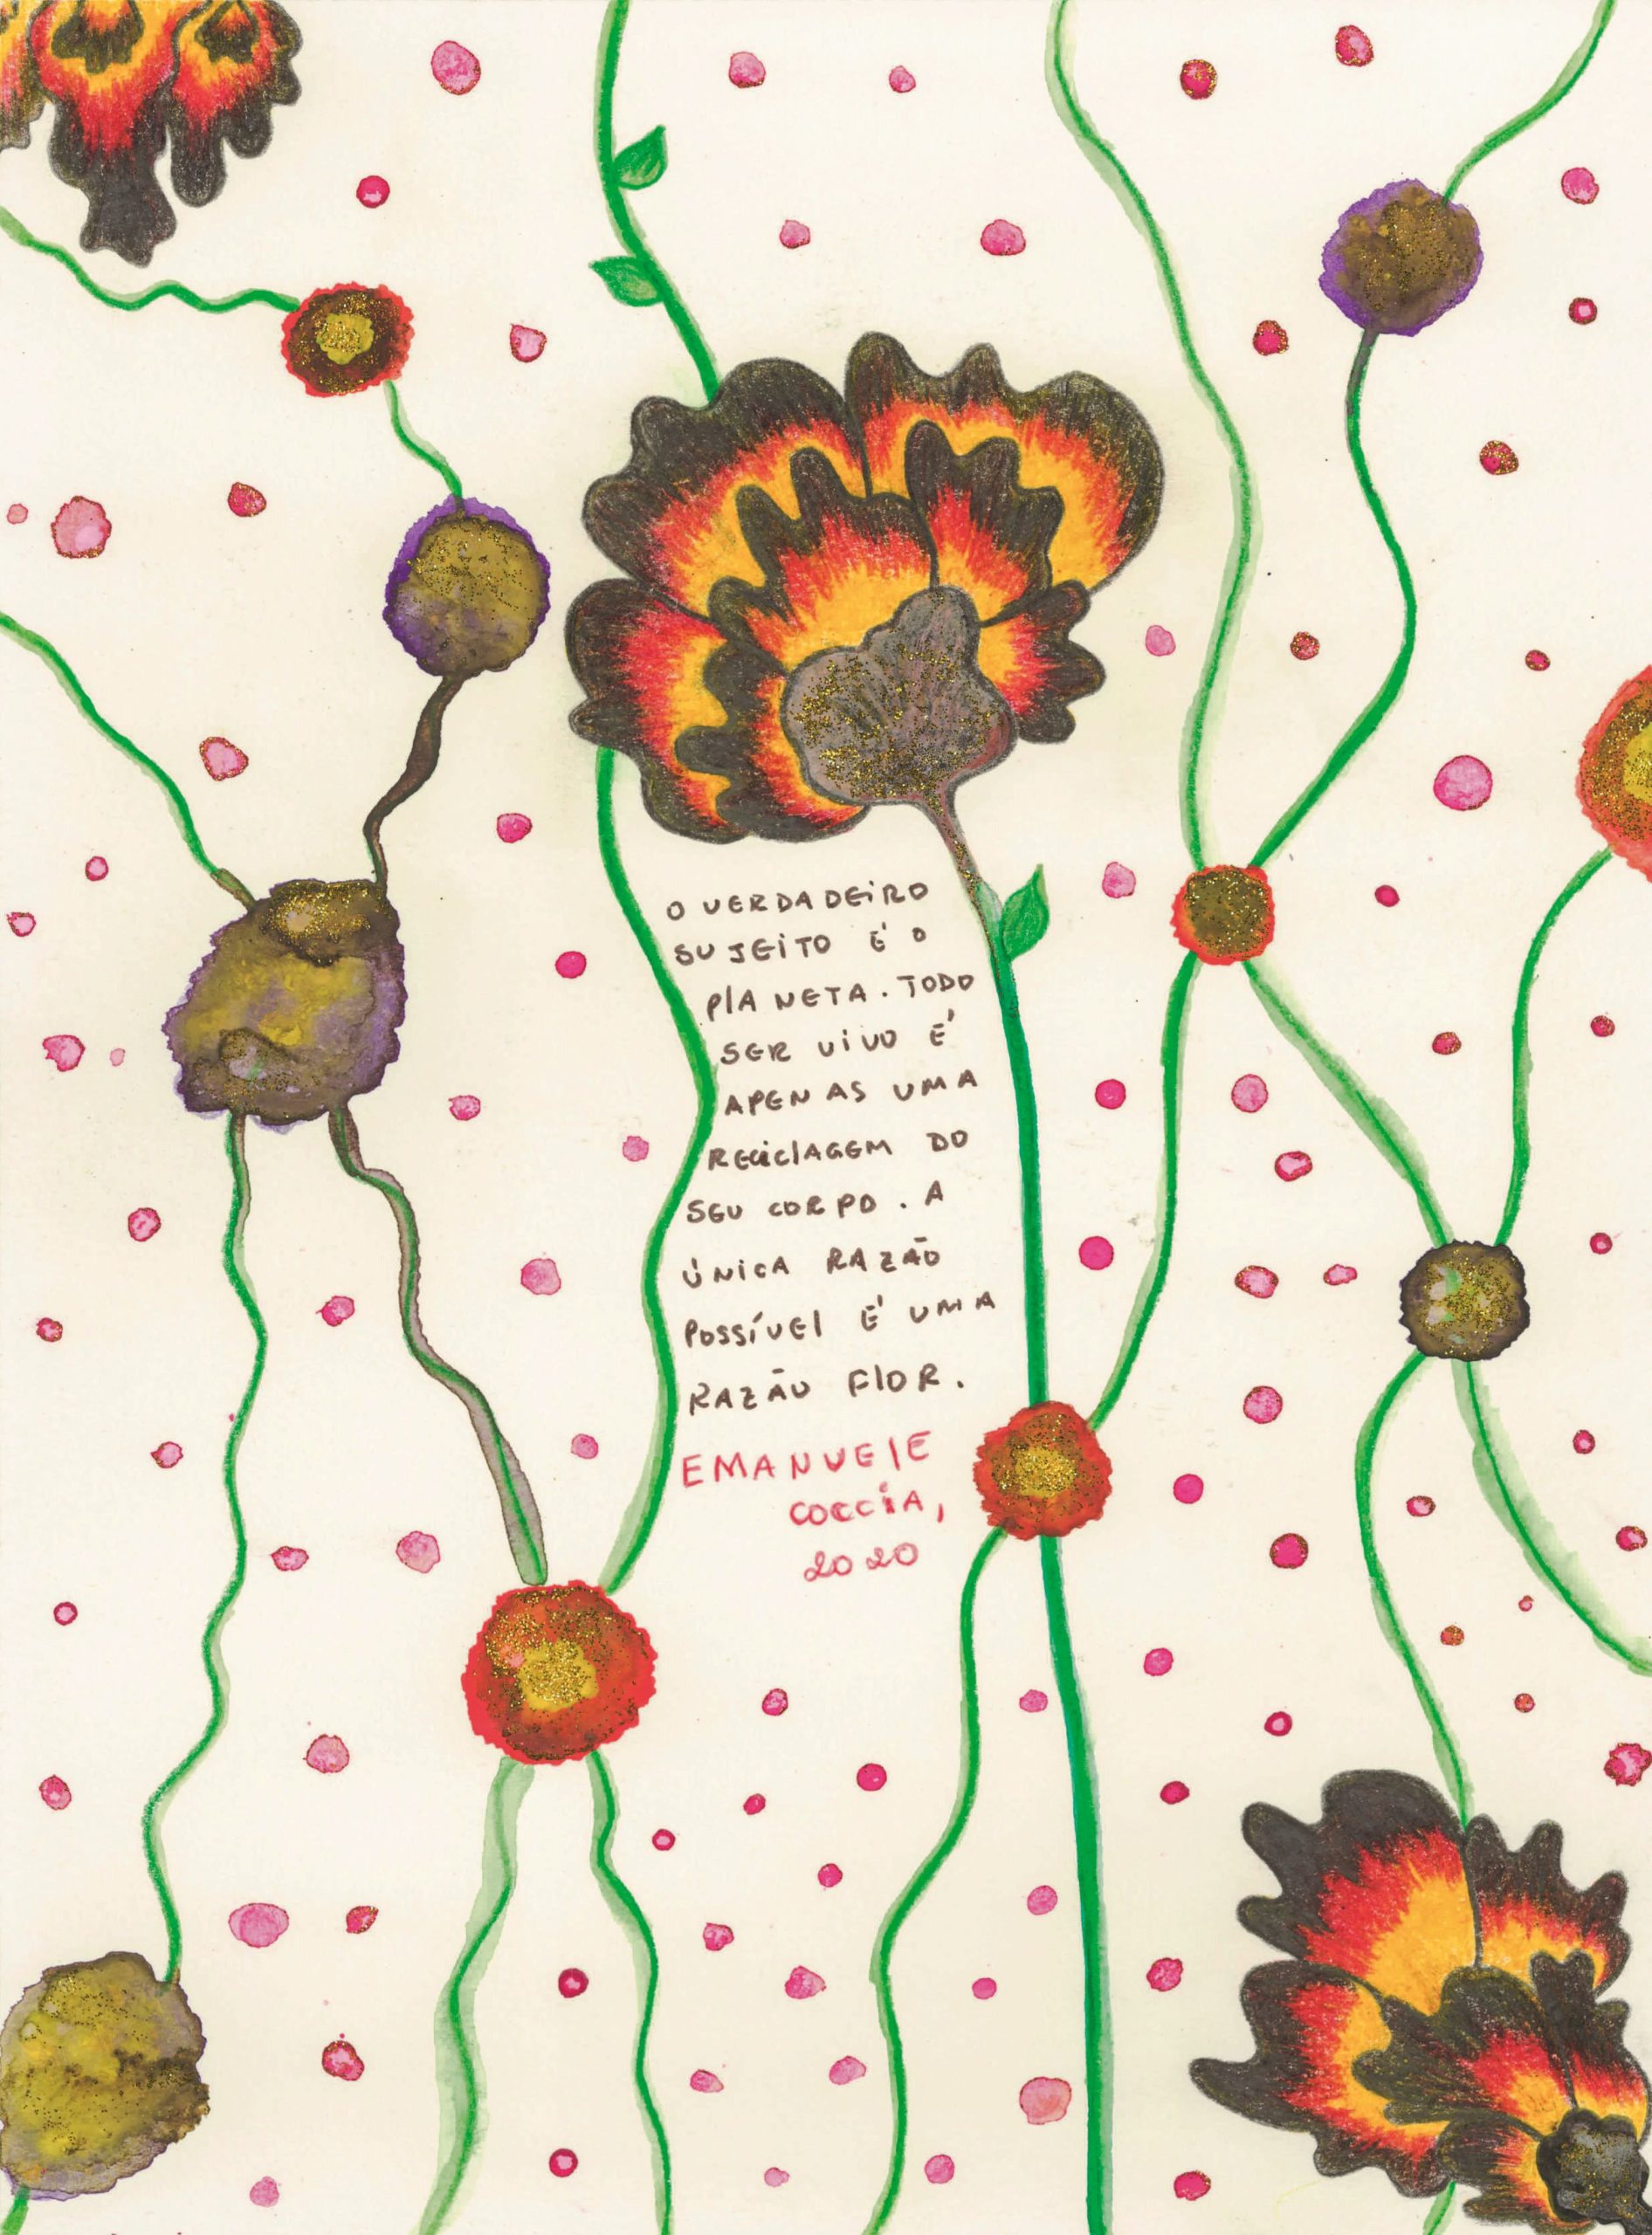 O VERDADEIRO
SUJEITO É O
PlANETA. TODO
SER VIVO É
APENAS UMA
RECiClAGEM DO
SEU CORPO. A
ÚNICA RAZÃO
POSSÍVEl É UMA
RAZÃO FlOR.
EMANUElE
COCCIA,
2020